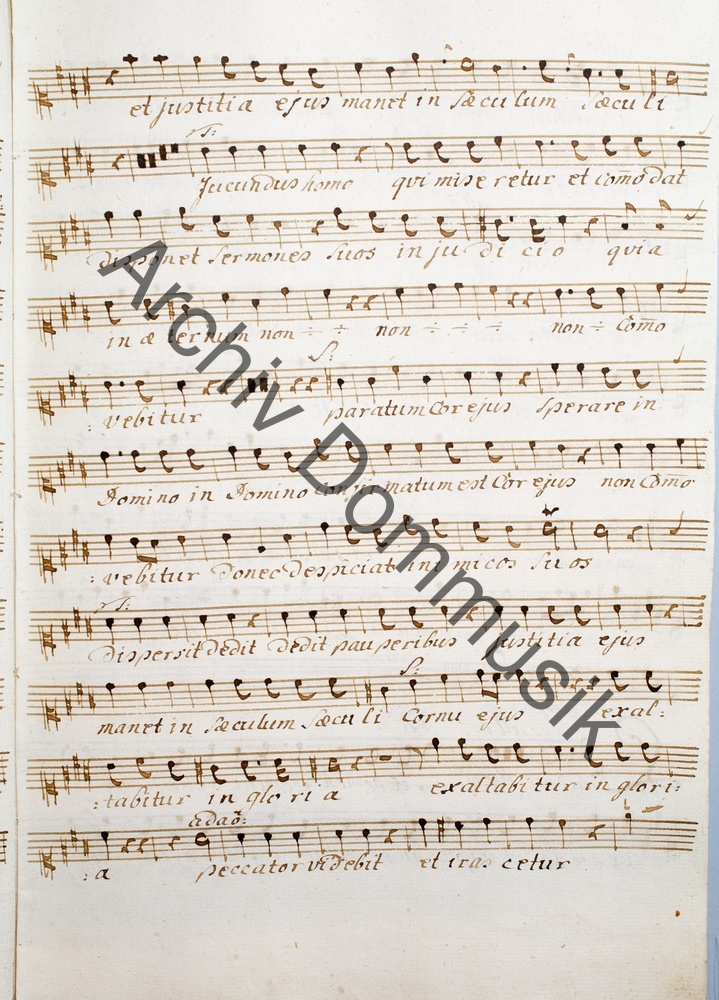 et justitia ejus manet in sæculum sæculi
T:
Jucundus homo qui miseretur et com̄odat
disponet sermones suos in judicio quia
in æternum non ÷ ÷ non ÷ ÷ ÷ non ÷ Com̄o
S:
:vebitur paratum Cor ejus sperare in
Domino in Domino confirmatum est Cor ejus non Com̄o
:vebitur Donec despiciat inimicos suos
T:
Dispersit dedit dedit pauperibus justitia ejus
S:
manet in sæculum sæculi Cornu ejus exal:
:tabitur in gloria exaltabitur in glori:
adaō:
:a peccator videbit et irascetur
Archiv Dommusik